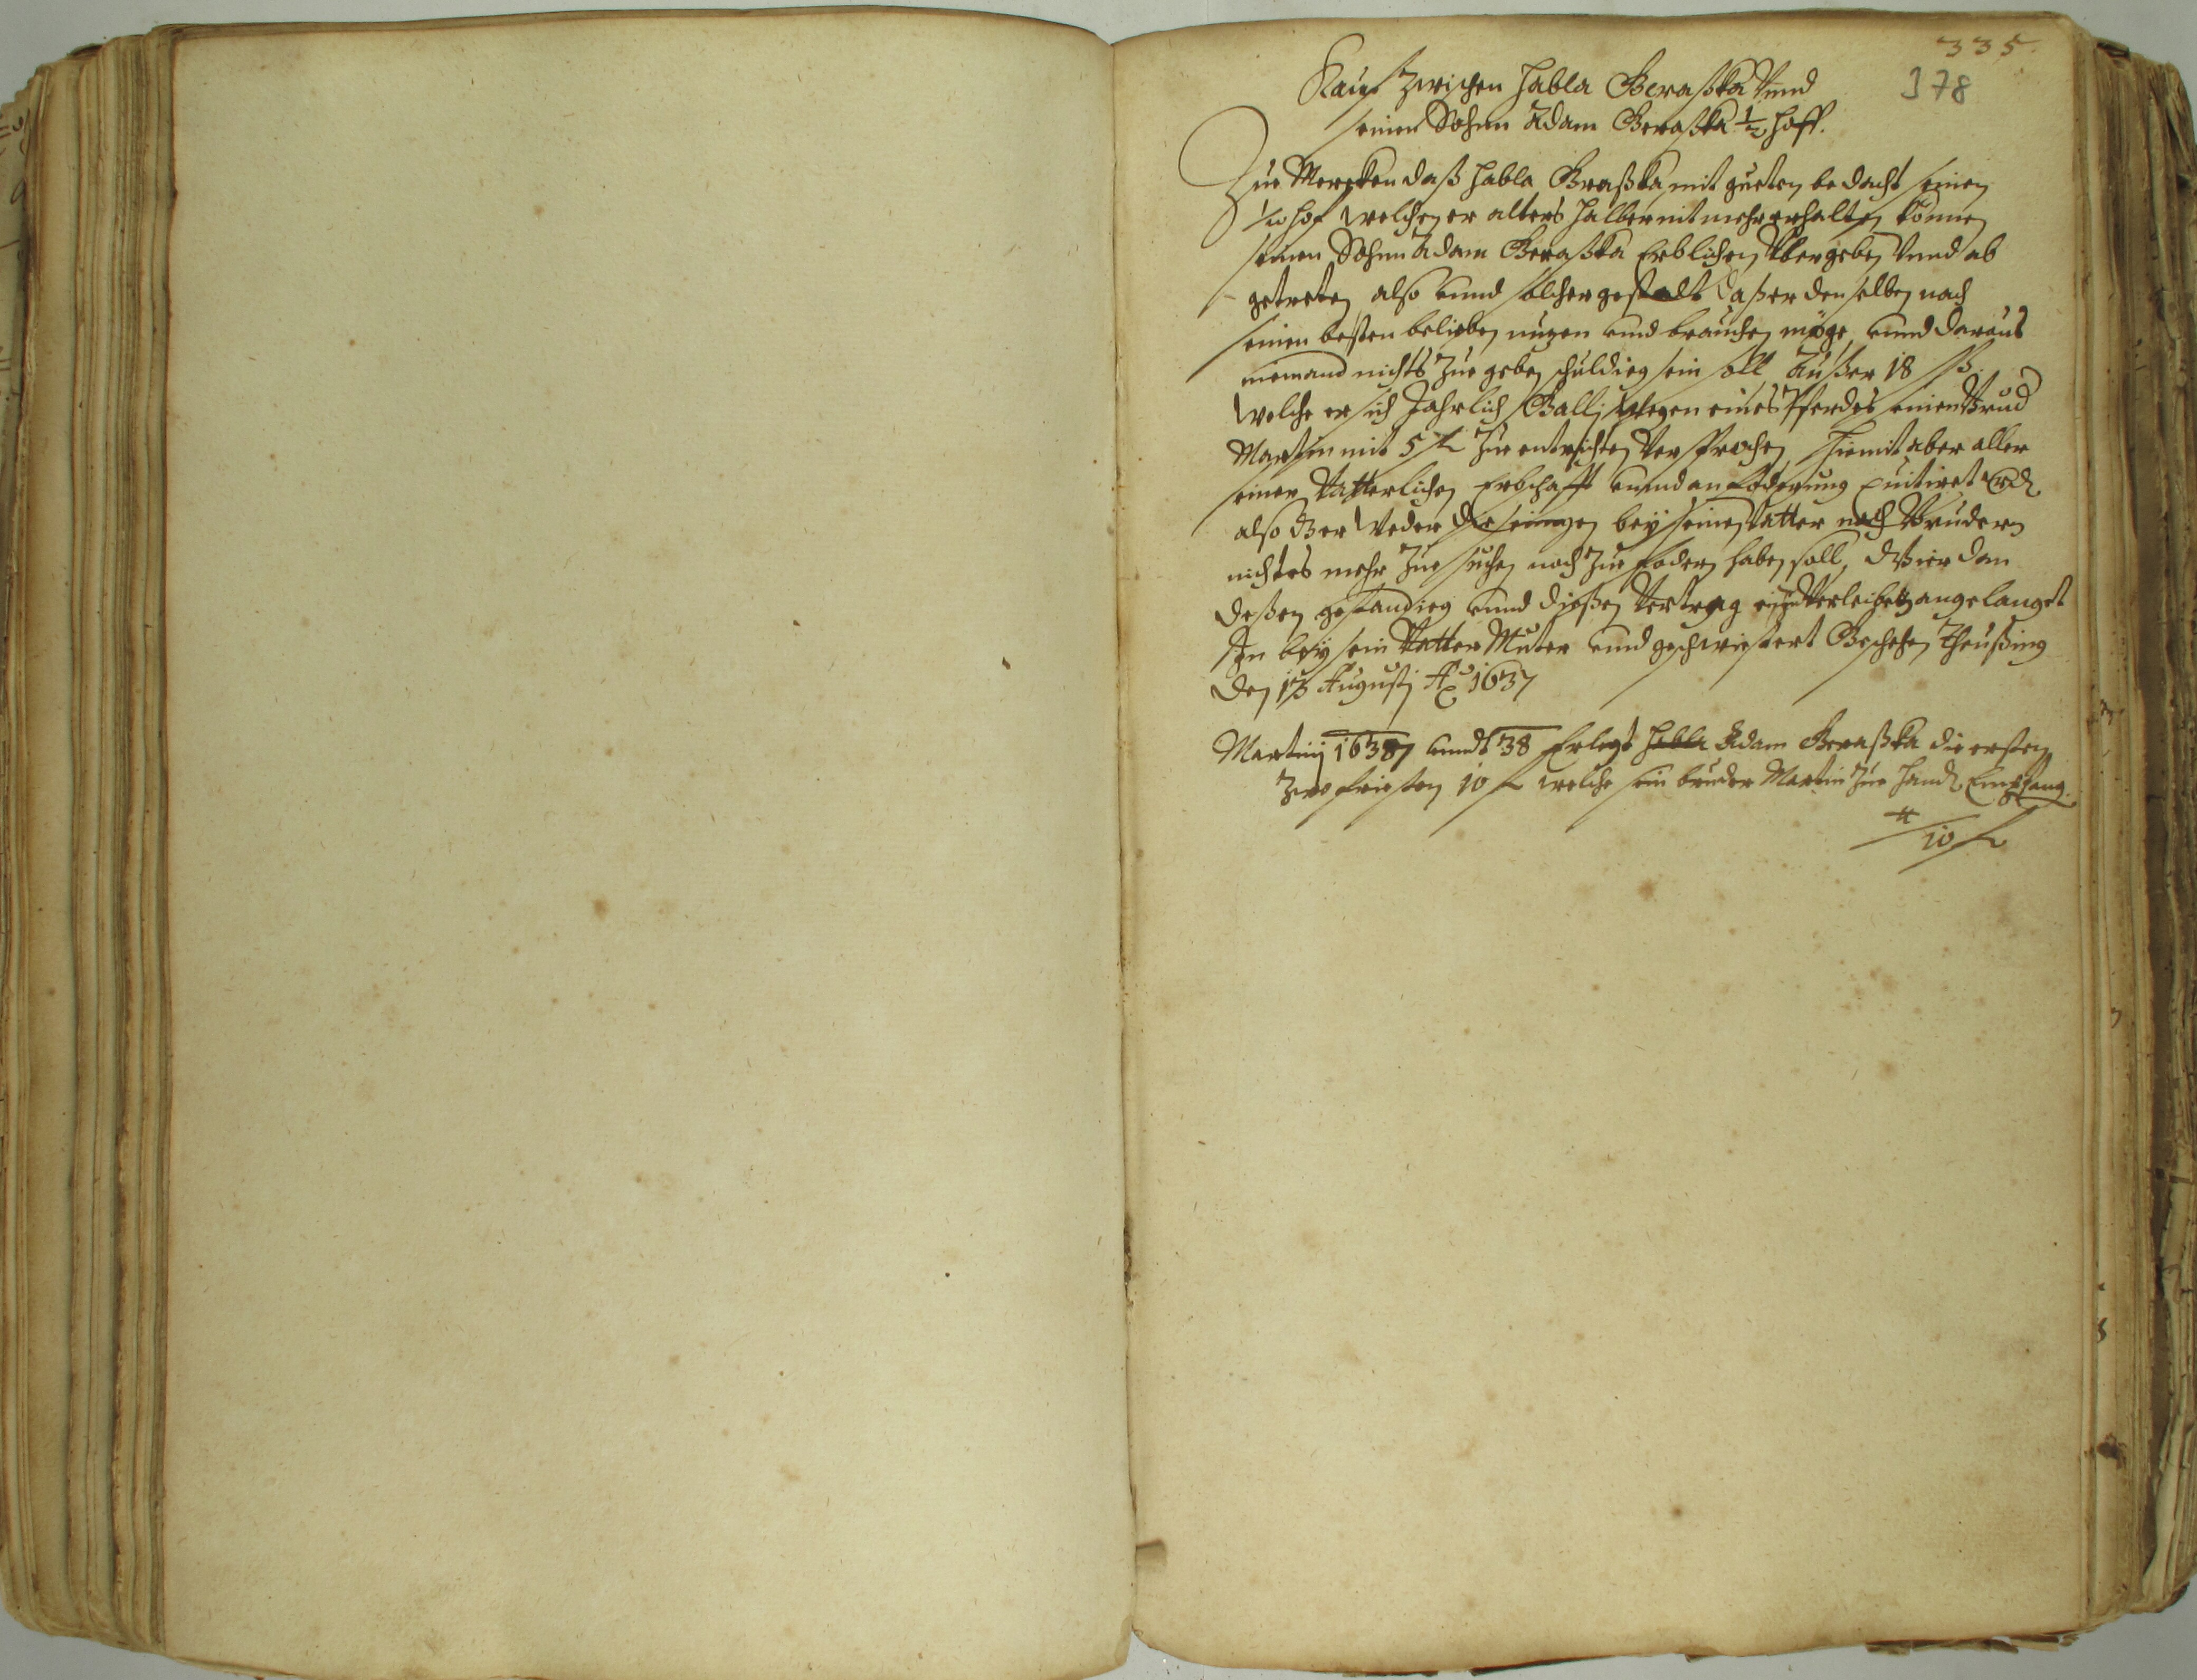 335.
378
Kauf zwischen Habla Beraßka Vnnd
seinen Sohnn Adam Beraßka 1/2 hoff.
Zue Mercken daß Habla Braßka mit gueten bedacht seinen
1/2 hof welchen er alters halber nit mehr erhalten können
seinen Sohnn Adam Beraßka Erblichen Vbergeben Vnnd ab
getreten also vnnd solcher gestaldt daß er denselben nach
seinen besten belieben nuzen vnnd brauchen möge vnnd daraus
niemand nichts zue geben schuldieg sein soll außer 18 ßß.
Welche er sich Jahrlich Galli wegen eines Pferdes einen Brud
Martin mit 5 ß zue entrichten Versprochen hiemit aber aller
seiner Vatterlichen Erbschafft vnnd an foderung quitiret
also dz er Weder bey seinen Vatter noch Brudern
nichtes mehr zue suchen noch zue fodern haben soll, dan
deßen gestandieg vnnd dießen Vertrag einzuverleiben angelanget
In bey sein Vatter Muter vnnd geschwistert Geschehen Theußing
den 13 Augusti Ao 1637
Martinj 1637 vnndt 38 Erlegt Habla Adam Beraßka die ersten
zwo fristen 10 ß welche sein bruder Martin zue hand Empfang.
10 ß